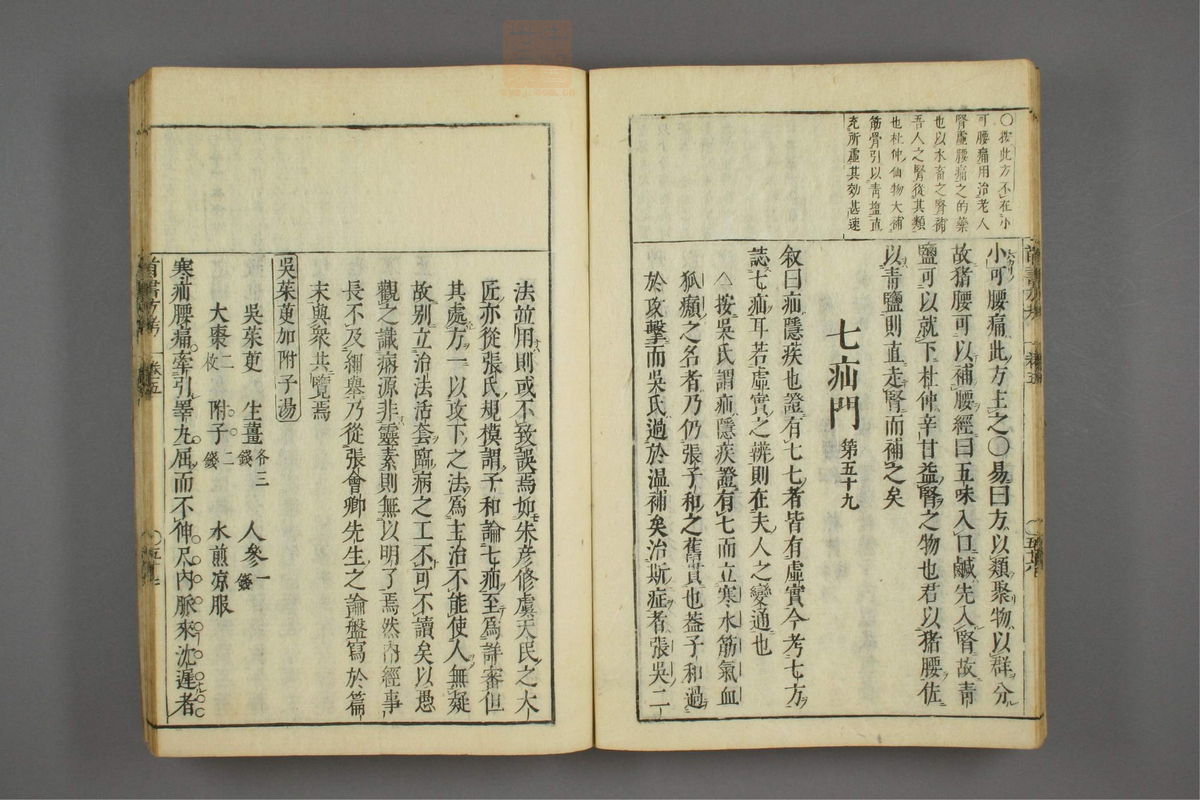 ○按此方不在小
可腰痛用治老人
腎虛腰痛之的藥
也以水畜之腎補
吾人之腎從其類
也杜仲仙物大補
筋骨引以青塩直
充所虛其効甚速
小可腰痛此方主之○易曰方以類聚物以群分
故猪腰可以補腰經曰五味入口鹹先入腎故青
鹽可以就下杜仲辛甘益腎之物也君以猪腰佐
以青鹽則直走腎而補之矣
七疝門 第五十九
叙曰疝隱疾也證有七七者皆有虛實今考七方
誌七疝耳若虛實之辨則在夫人之變通也
△按吳氏謂疝隱疾證有七而立寒水筋氣血
狐癩之名者乃仍張子和之舊貫也葢子和過
於攻擊而吳氏過於温補矣治斯症者張吳二
法並用則或不致誤焉如朱彦修虞天民之大
匠亦從張氏規模謂子和論七疝至為詳審但
其處方一以攻下之法為主治不能使人無疑
故别立治法活套臨病之工不可不讀矣以愚
觀之識病源非靈素則無以明了焉然內經事
長不及細舉乃從張會卿先生之論盤寫於篇
末與衆共覽焉
吳茱萸加附子湯
吳茱萸 生薑各三錢 人參一錢
大棗二枚 附子二錢 水煎凉服
寒疝腰痛牽引睾丸屈而不伸尺內脈來沈遲者
首書方考 卷五